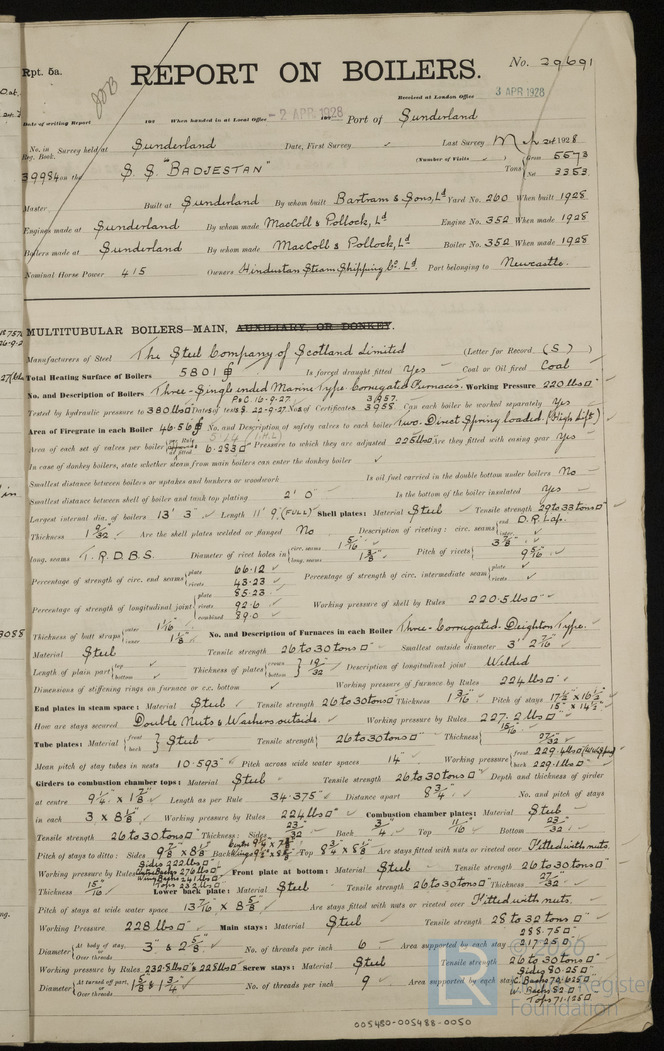 Rpt. 5a.
No. 29691
REPORT ON BOILERS.
Received at London Office 3 APR 1928
Date of writing Report 192 When handed in at Local Office - 2 APR 1928 Port of Sunderland
No. in Reg. Book. Survey held at Sunderland Date, First Survey Last Survey 1928
39984 on the S.S. "BADJESTAN" (Number of Visits ) Tons Gross 5573 Net 3353
Master Built at Sunderland By whom built Bartram & Sons, Ld Yard No. 260 When built 1928
Engines made at Sunderland By whom made MacColl & Pollock, Ld Engine No. 352 When made 1928
Boilers made at Sunderland By whom made MacColl & Pollock, Ld Boiler No. 352 When made 1928
Nominal Horse Power 415 Owners Hindustan Steam Shipping Co. Ld. Port belonging to Newcastle.
MULTITUBULAR BOILERS—MAIN, AUXILIARY OR DONKEY.
Manufacturers of Steel The Steel Company of Scotland Limited (Letter for Record (S))
Total Heating Surface of Boilers 5801 Is forced draught fitted Yes Coal or Oil fired Coal
No. and Description of Boilers Three-Single ended Marine Type. Corrugated Furnaces. Working Pressure 220 lbs□"
Tested by hydraulic pressure to 380 lbs Date of test 22-9-27 No. of Certificates 3957. 3958. Can each boiler be worked separately Yes
Area of Firegrate in each Boiler 46.56 No. and Description of safety valves to each boiler two. Direct Spring loaded. (High Lift)
Area of each set of valves per boiler 6.283□" Pressure to which they are adjusted 225 lbs Are they fitted with easing gear Yes
In case of donkey boilers, state whether steam from main boilers can enter the donkey boiler
Smallest distance between boilers or uptakes and bunkers or woodwork Is oil fuel carried in the double bottom under boilers No
Smallest distance between shell of boiler and tank top plating 2' 0" Is the bottom of the boiler insulated Yes
Largest internal dia. of boilers 13' 3" Length 11' 9" (FULL) Shell plates: Material Steel Tensile strength 29 to 33 tons□"
Thickness 1 9/32 Are the shell plates welded or flanged No Description of riveting: circ. seams end D.R. Lap. inter.
long. seams T.R.D.B.S. Diameter of rivet holes in circ. seams 1 5/16 long. seams 1 3/8" Pitch of rivets 3 7/8" 9 5/16
Percentage of strength of circ. end seams plate 66.12 rivets 43.23 Percentage of strength of circ. intermediate seam plate rivets
Percentage of strength of longitudinal joint plate 85.23 rivets 92.6 combined 89.0 Working pressure of shell by Rules 220.5 lbs□"
Thickness of butt straps outer 1 1/16 inner 1 1/8" No. and Description of Furnaces in each Boiler Three-Corrugated. Deighton Type.
Material Steel Tensile strength 26 to 30 tons□" Smallest outside diameter 3' 2 7/16
Length of plain part top bottom Thickness of plates crown bottom 19/32 Description of longitudinal joint Welded
Dimensions of stiffening rings on furnace or c.c. bottom Working pressure of furnace by Rules 224 lbs□"
End plates in steam space: Material Steel Tensile strength 26 to 30 tons□" Thickness 1 3/16 Pitch of stays 17 1/2 × 16 1/2 15" × 14 1/2
How are stays secured Double Nuts & Washers outside. Working pressure by Rules 227.2 lbs□"
Tube plates: Material front back Steel Tensile strength 26 to 30 tons□" Thickness 15/16 27/32
Mean pitch of stay tubes in nests 10.593" Pitch across wide water spaces 14" Working pressure front 229.4 lbs□" back 229.1 lbs□"
Girders to combustion chamber tops: Material Steel Tensile strength 26 to 30 tons□" Depth and thickness of girder
at centre 9 1/4 × 1 7/8 Length as per Rule 34.375" Distance apart 8 3/4" No. and pitch of stays
in each 3 × 8 1/8" Working pressure by Rules 224 lbs□" Combustion chamber plates: Material Steel
Tensile strength 26 to 30 tons□" Thickness: Sides 23/32 Back 3/4 Top 11/16 Bottom 23/32
Pitch of stays to ditto: Sides 9 7/8 × 8 1/8 Back Top 8 3/4 × 8 1/8 Are stays fitted with nuts or riveted over Fitted with nuts.
Working pressure by Rules Sides 222 lbs Tops 232 lbs□" Front plate at bottom: Material Steel Tensile strength 26 to 30 tons□"
Thickness 15/16 Lower back plate: Material Steel Tensile strength 26 to 30 tons□" Thickness 27/32
Pitch of stays at wide water space 13 7/16 × 8 5/8 Are stays fitted with nuts or riveted over Fitted with nuts.
Working Pressure 228 lbs□" Main stays: Material Steel Tensile strength 28 to 32 tons□"
Diameter At body of stay, or Over threads 3" & 2 5/8 No. of threads per inch 6 Area supported by each stay 288.75□" 217.25□"
Working pressure by Rules 232.8 lbs□" & 228 lbs□" Screw stays: Material Steel Tensile strength 26 to 30 tons□"
Diameter At turned off part, or Over threads 1 5/8 & 1 3/4" No. of threads per inch 9 Area supported by each stay Sides 80.25□" C. Backs 72.625□" W. Backs 82□" Tops 71.125□"
© 2020
LR
Lloyd's Register
Foundation
005480-005488-0050